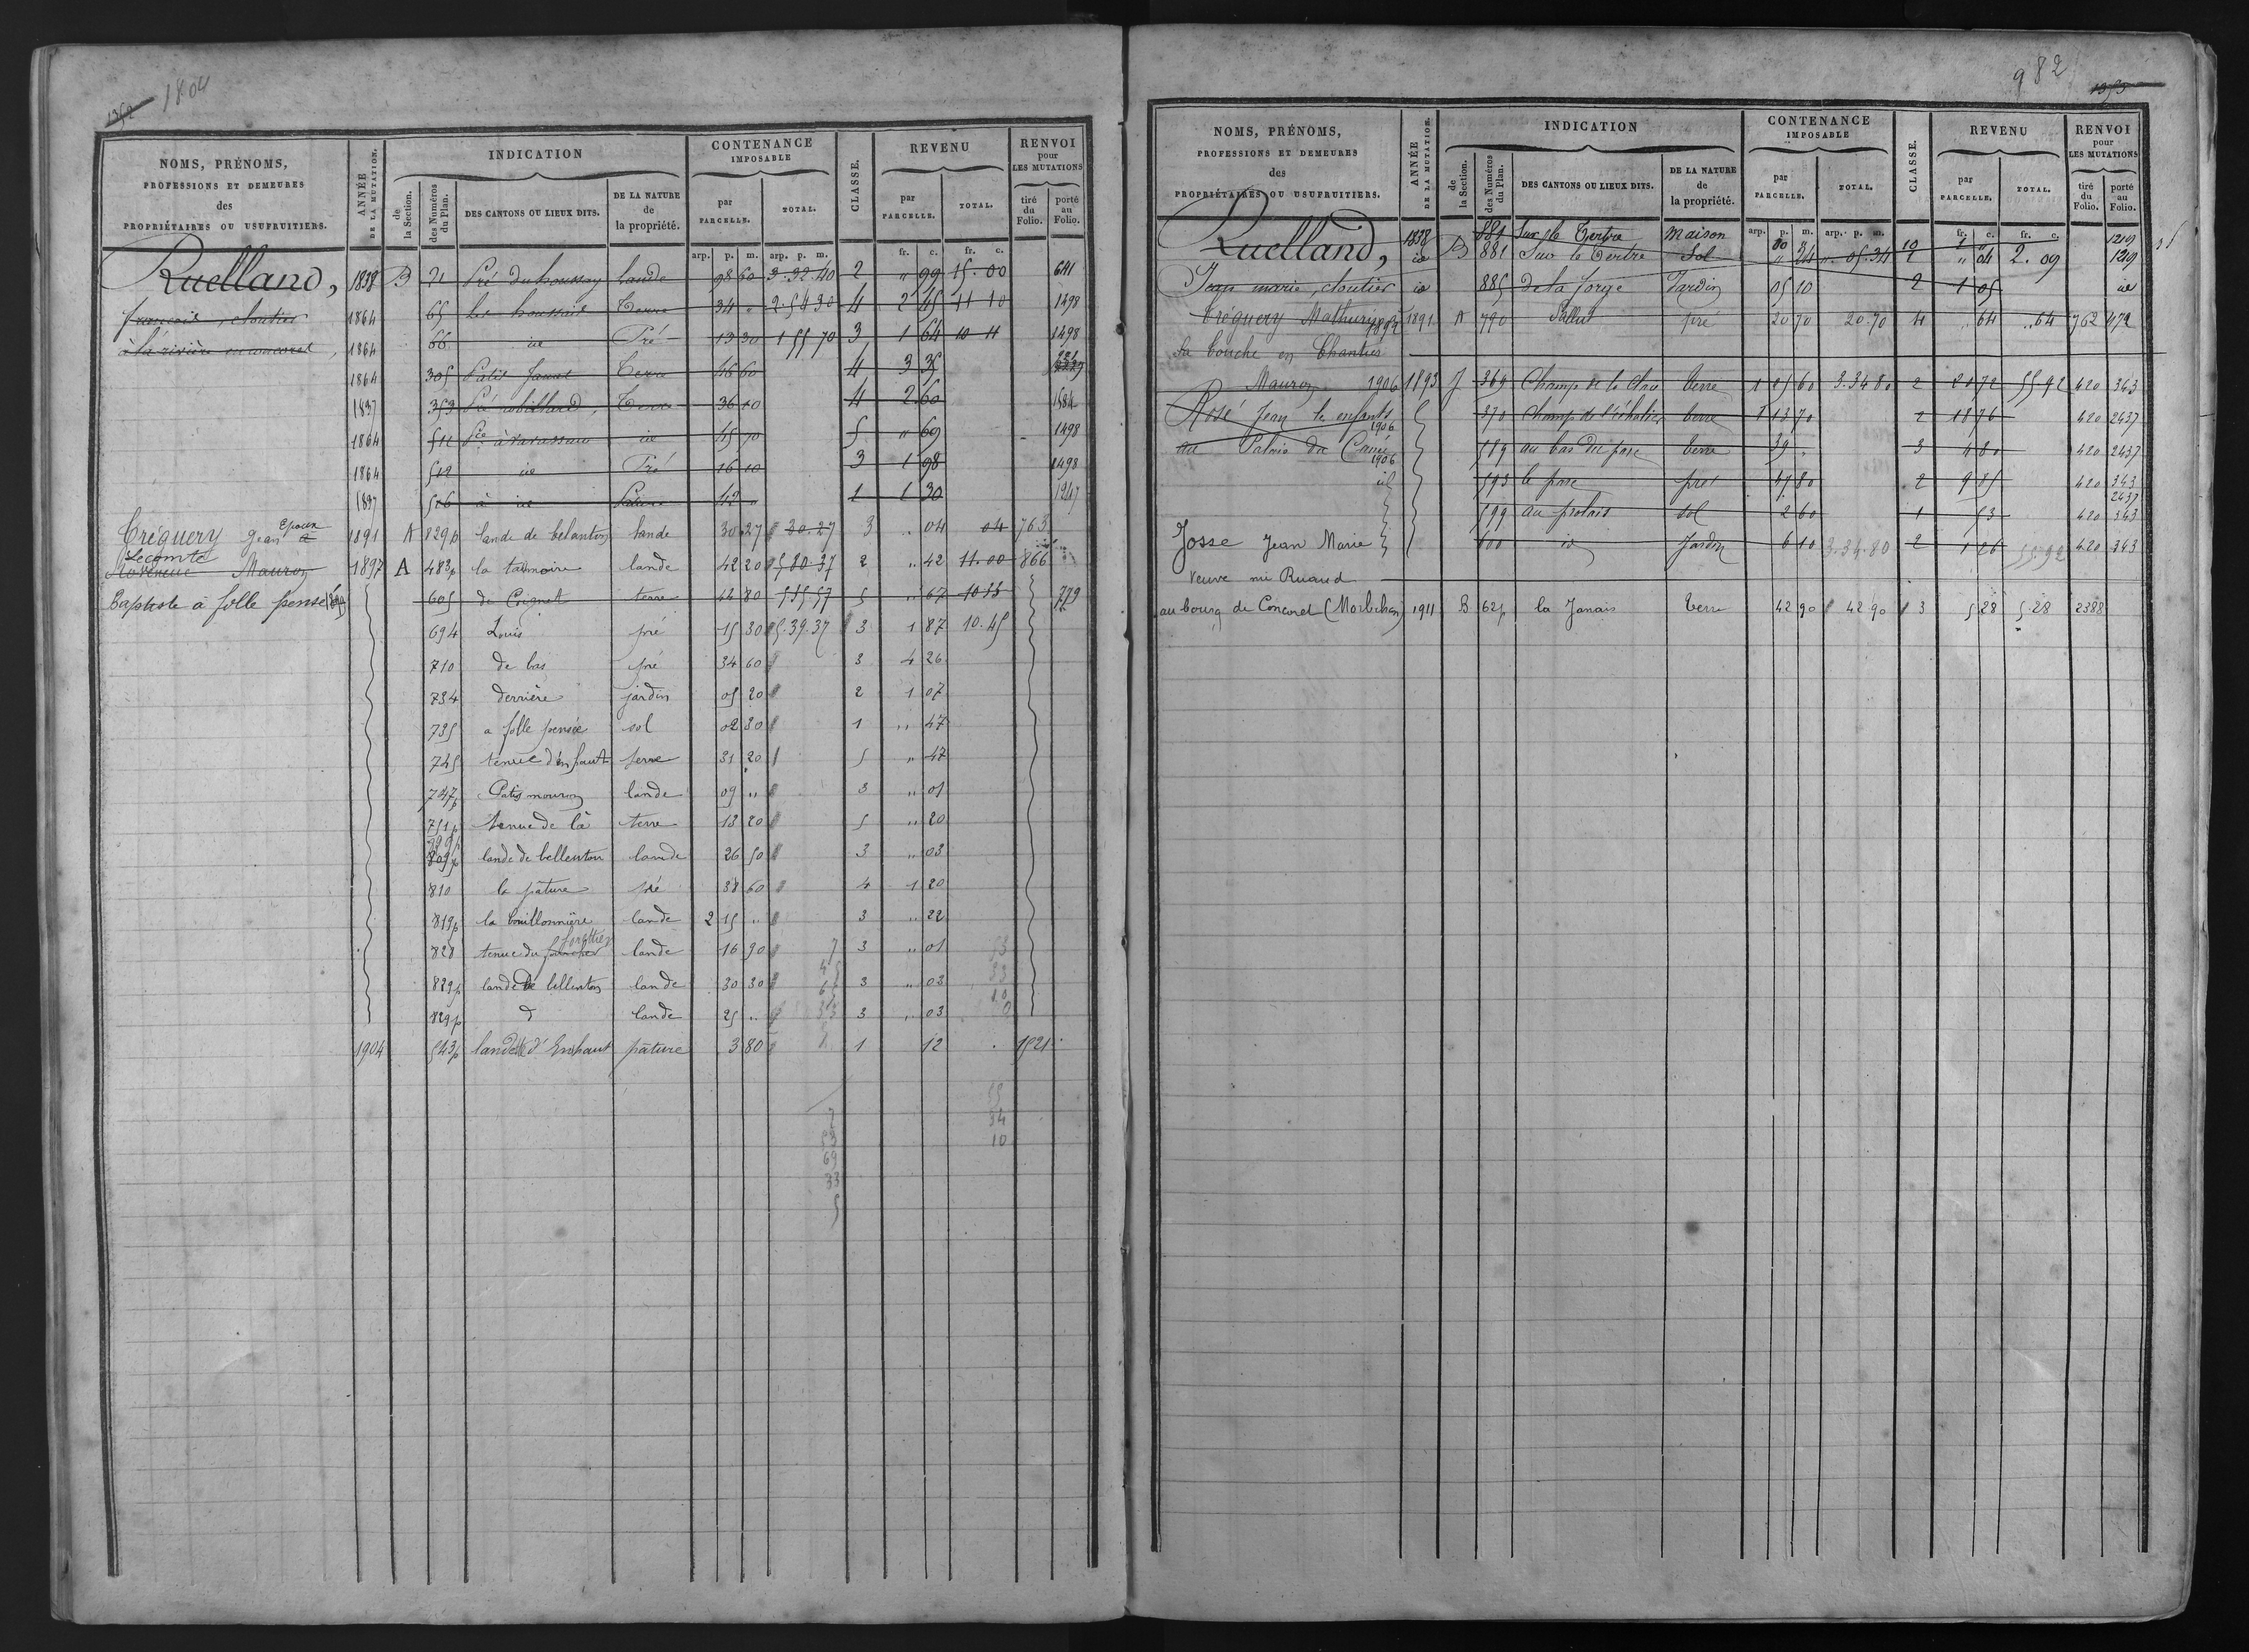 1352 1804
NOMS, PRÉNOMS, PROFESSIONS ET DEMEURES des PROPRIÉTAIRES OU USUFRUITIERS.
ANNÉE DE LA MUTATION.
INDICATION
de la Section.
des Numéros du Plan.
DES CANTONS OU LIEUX DITS.
DE LA NATURE de la propriété.
CONTENANCE IMPOSABLE
par PARCELLE.
TOTAL.
CLASSE.
REVENU
par PARCELLE.
TOTAL.
RENVOI pour LES MUTATIONS
tiré du Folio.
porté au Folio.
arp. p. m. arp. p. m. fr. c. fr. c.
Ruelland, 1838 B 21 Pré du houssay lande 98 60 3.92.40 2 " 99 15.00 641
françois, cloutier 1864 65 Les houssais Terre 34 " 2.54 30 4 2 45 11 10 1498
à la rivière en concoret, 1864 66 id Pré 13 30 1 55 70 3 1 64 10 11 1498
1864 305 Patis Terre 46 60 4 3 35
1837 353 Pré robillard, Terre 36 10 4 2 60 1584
1864 511 id 45 70 5 " 69 1498
1864 512 id Pré 16 10 3 1 98 1498
1837 516 à id 1 1 30 1247
Epoux
Tréguery Jean 1891 A 829p lande de belanton lande 30 27 30.27 3 .. 04 04 763
Lecomte
Mauron 1897 A 483p la tannoire lande 42 20 5 80 37 2 .. 42 11.00 866
Baptiste à folle pensé 605 de Coignet terre 42 80 5 55 57 5 .. 67 10 55 779
694 Louis pré 15 30 5.39.37 3 1 87 10.45
710 de bas pré 34 60 3 4 26
734 derrière jardin 05 20 2 1 07
735 a folle pensée sol 02 30 1 .. 47
745 tenue d'en haut terre 31 20 5 " 47
747p Patis mouron lande 09 .. 3 .. 01
751p tenue de là terre 13 20 5 .. 20
809p lande de bellenton lande 26 50 3 .. 03
810 la pâture pré 38 60 4 1 20
819p la bouillonnière lande 2 15 .. 3 .. 22
828 tenue du lande 16 90 3 .. 01
829p lande de bellenton lande 30 30 3 .. 03
829p d lande 25 .. 3 .. 03
1904 543p lande d'Enhaut pâture 3 80 1 12 1521
7
53
69
33
5
34
10
982 1353
NOMS, PRÉNOMS, PROFESSIONS ET DEMEURES des PROPRIÉTAIRES OU USUFRUITIERS.
ANNÉE DE LA MUTATION.
INDICATION
de la Section.
des Numéros du Plan.
DES CANTONS OU LIEUX DITS.
DE LA NATURE de la propriété.
CONTENANCE IMPOSABLE
par PARCELLE.
TOTAL.
CLASSE.
REVENU
par PARCELLE.
TOTAL.
RENVOI pour LES MUTATIONS
tiré du Folio.
porté au Folio.
arp. p. m. arp. p. m. fr. c. fr. c.
Ruelland, 1838 881 Sur le Tertre Maison 10 1219
id B 881 Sur le Tertre Sol " 24 " 05.34 1 " 04 2.09 1219
Jean marie, cloutier id 885 de la forge Jardin 05 10 2 1 05 id
Tréguery Mathurin 1891 A 790 Pallue pré 20 70 20.70 4 " 64 .. 64 762 472
la bouche en Chantier
Mauron 1906 1893 J 369 Champ de la Croix terre 1 25 60 3.34 80 2 20 72 55.92 420 343
Rosé Jean les enfants 370 Champ de l'échalier terre 1 13 70 2 18 76 420 2437
1906
au Palais du Canée 589 au bas du parc terre 39 " 3 4 80 420 2437
1906
id 593 le parc pré 47 80 2 9 85 420 343
2437
599 au palais sol 2 60 1 53 420 343
Josse Jean Marie 600 id Jardin 6 10 3.34.80 2 1 26 55.92 420 343
Veuve née Ruaud
au bourg de Concoret (Morbihan) 1911 B 62p la Janais terre 42 90 42 90 3 5 28 5.28 2388